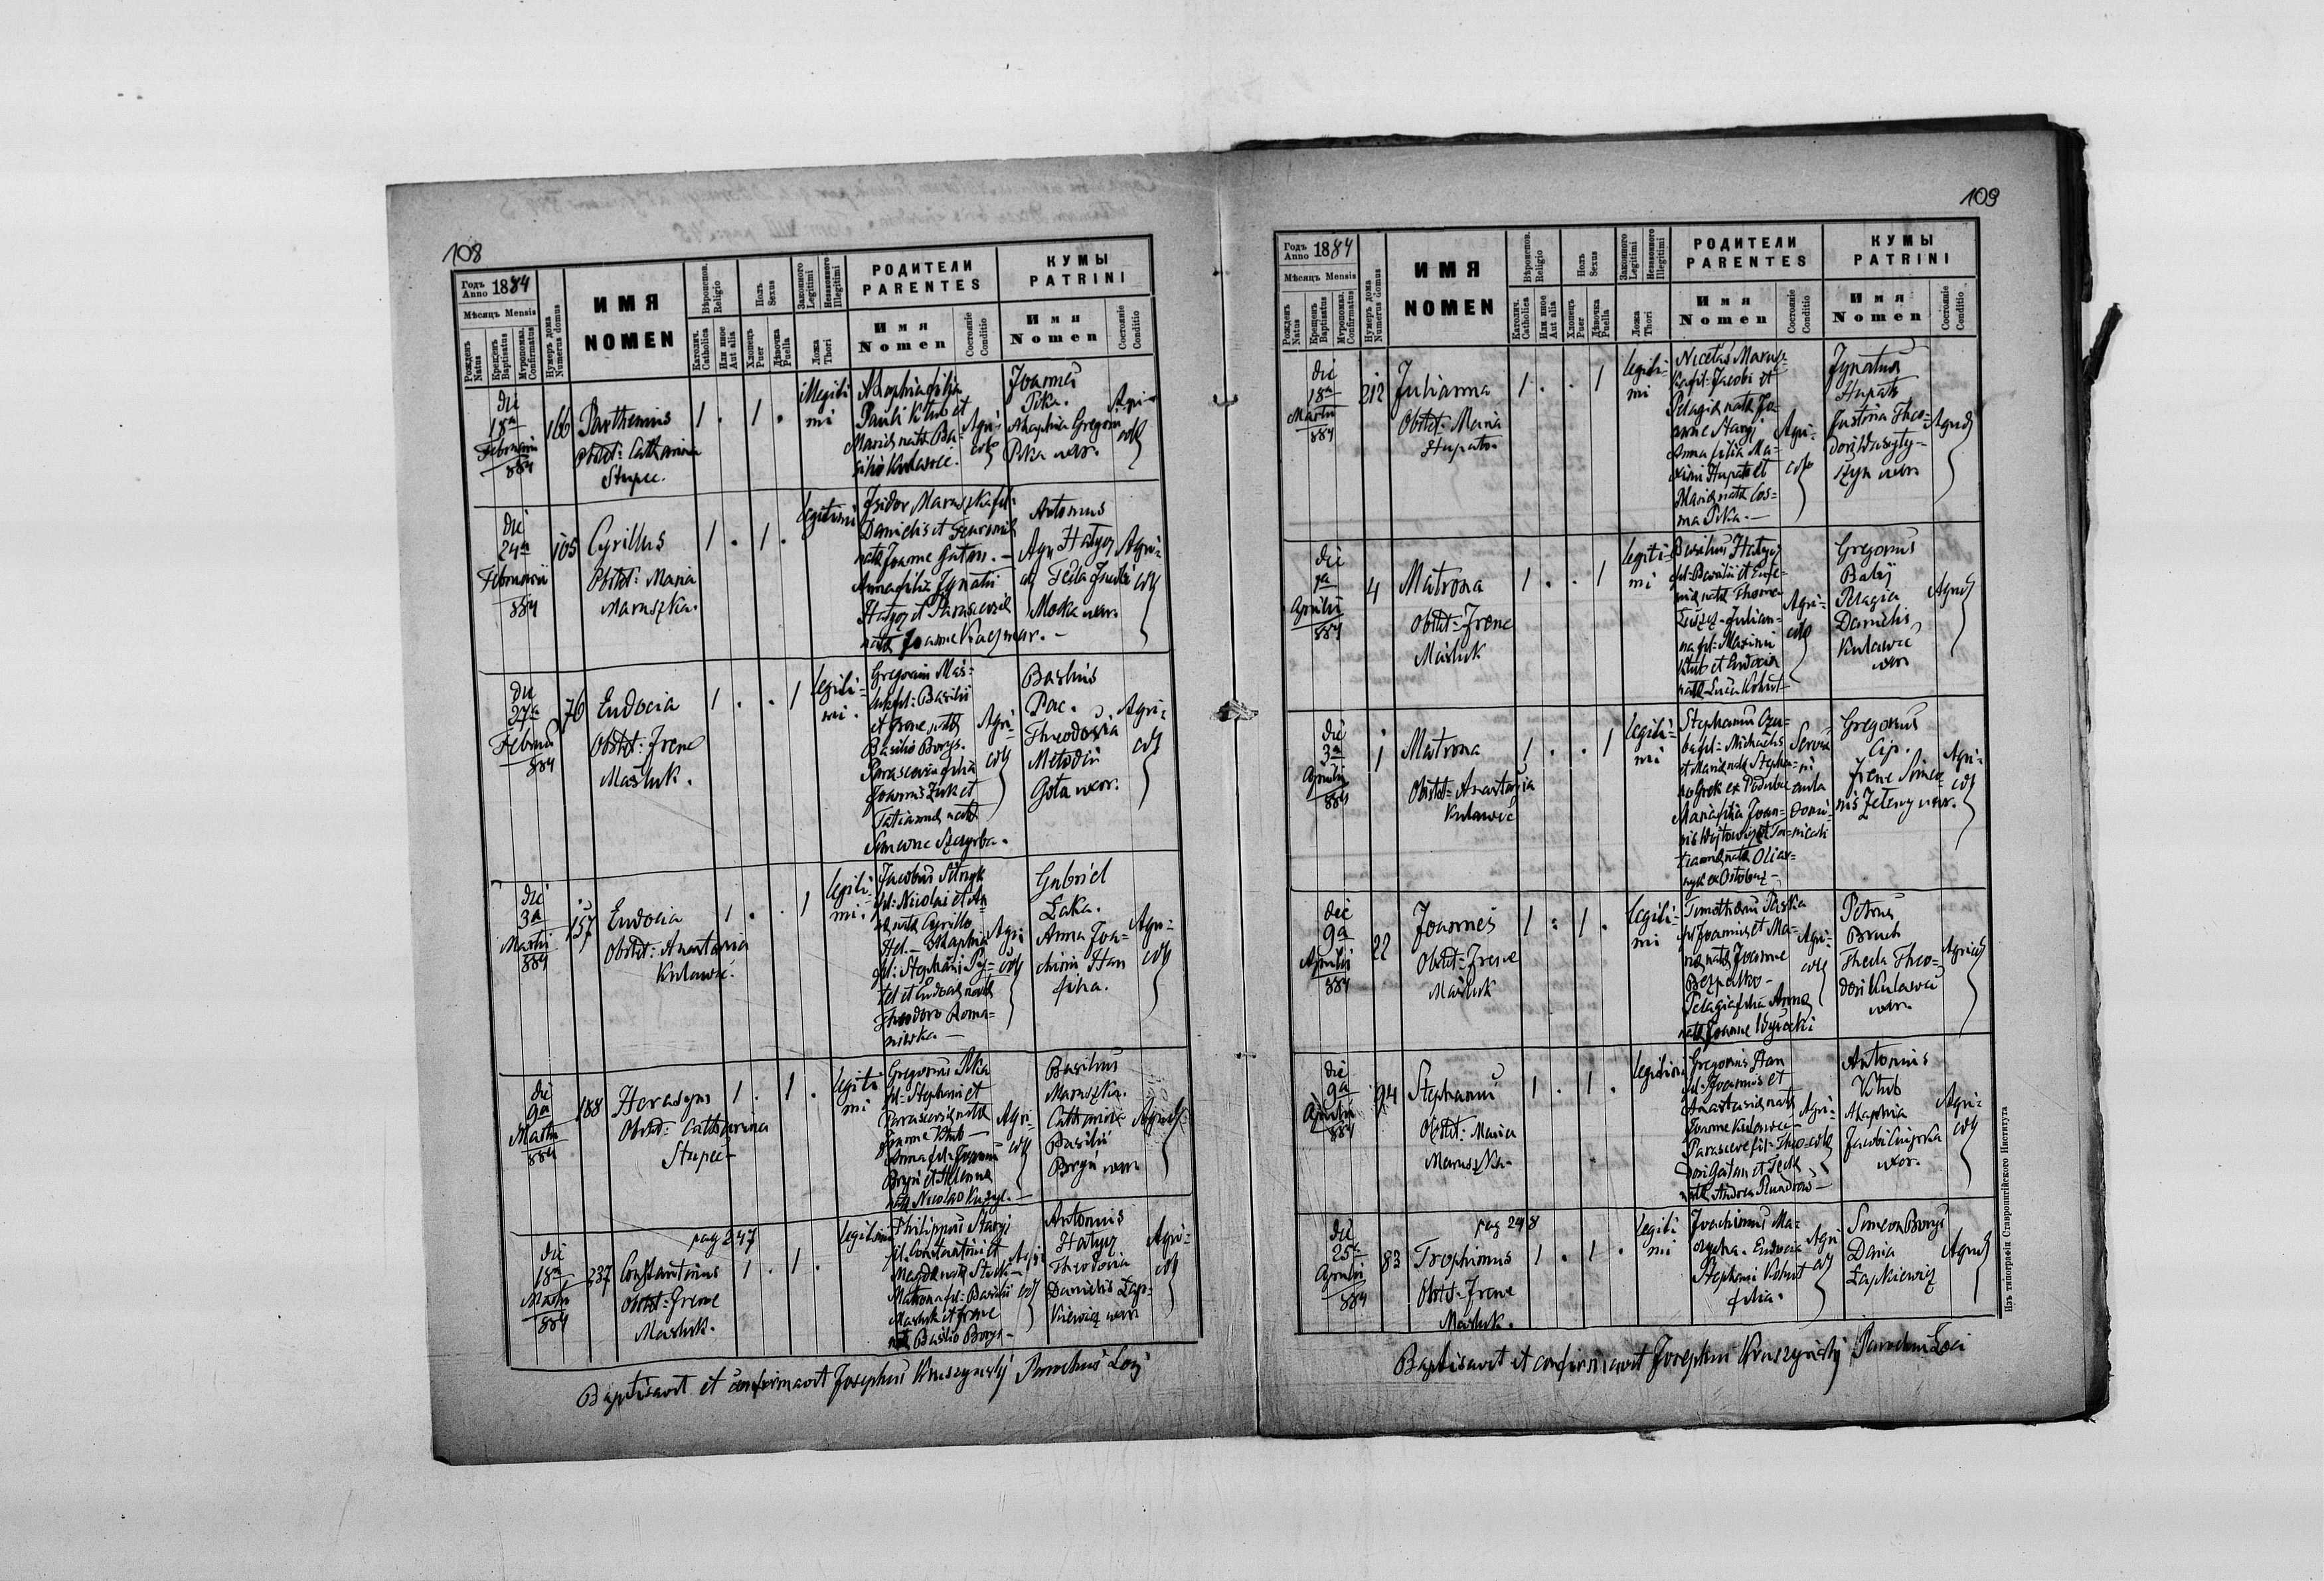 108
Годъ Anno 1884
Мѣсяцъ Mensis
Рожденъ Natus
Крещенъ Baptisatus
Муропомаз. Confirmatus
Нумеръ дома Numerus domus
ИМЯ
NOMEN
Вѣроиспов. Religio
Католич. Catholica
Или иное Aut alia
Полъ Sexus
Хлопецъ Puer
Дѣвочка Puella
Законного Legitimi
Незаконного Illegitimi
Ложа Thori
РОДИТЕЛИ
PARENTES
Имя
Nomen
Состояніе Conditio
КУМЫ
PATRINI
Имя
Nomen
Состояніе Conditio
die
18a
Februarii
884
166
Parthenius
Obstet: Catharina
Stupec.
1 . 1 .
illegiti
mi
Akaphia filia
Pauli Klub et
Mariæ natæ Ba-
silio Kulawec.
Agri-
colæ
Joannes
Pika.
Akaphia Gregorii
Pika uxor.
Agri-
colæ
die
24a
Februarii
884
105
Cyrillus
Obstet: Maria
Maruszka.
1 . 1 .
legitimi
Isidor Maruszka fil:
Danielis et
natæ Joanne Gatan. -
Anna filia Ignatii
Hatycz et Parascevæ
natæ Joanne Kaczmar. -
Antonius
Hatycz
Tecla
Mocka uxor.
Agri-
colæ
die
27a
Februarii
884
76
Eudocia
Obstet: Irene
Masluk.
1 . . 1
legiti-
mi.
Gregorius Mas-
luk fil: Basilii
et Irene natæ
Basilio Borys.
Parascevia filia
Joannis Zuk et
Tatiannæ natæ
Simeone Szczyrba.
Agri-
colæ
Basilius
Pac.
Theodosia
Metodii
Gola uxor.
Agri-
colæ
die
3a
Martii
884
157
Eudocia
Obstet: Anastasia
Kulawec.
1 . . 1
legiti-
mi
Jacobus
fil: Nicolai et An
næ natæ Cyrillo
Hul. - Akaphia
fil: Stephani
et Eudociæ natæ
Theodoro Roma-
niuka. -
Agri
colæ
Gabriel
Łaka.
Anna Joa-
chimi Han
filia.
Agri-
colæ
die
9a
Martii
884
188
Herasym
Obstet: Catharina
Stupec -
1 . 1 .
legiti
mi
Gregorius Pika
fil: Stephani et
Parasceviæ natæ
Joanne Klub -
Anna fil: Joannis
Bryn et Helenæ
natæ Nicolao Kuzyl. -
Agri-
colæ
Basilius
Maruszka.
Catharina
Basilii
Bryn uxor
Agricolæ
die
18a
Martii
884
237
pag 247
Constantinus
Obstet: Irene
Masluk.
1 . 1 .
legitimi
Philippus Staryj
fil. Constantini et
Magdæ natæ
Matrona fil: Basilii
Masluk et Irene
natæ Basilio Borys -
Agri
colæ
Antonius
Hatycz
Theodosia
Danielis Łap-
kiewicz uxor
Agri-
colæ
Baptisavit et confirmavit Josephus Kruszynskij Parochus Loci
109
Годъ Anno 1884
Мѣсяцъ Mensis
Рожденъ Natus
Крещенъ Baptisatus
Муропомаз. Confirmatus
Нумеръ дома Numerus domus
ИМЯ
NOMEN
Вѣроиспов. Religio
Католич. Catholica
Или иное Aut alia
Полъ Sexus
Хлопецъ Puer
Дѣвочка Puella
Законного Legitimi
Незаконного Illegitimi
Ложа Thori
РОДИТЕЛИ
PARENTES
Имя
Nomen
Состояніе Conditio
КУМЫ
PATRINI
Имя
Nomen
Состояніе Conditio
die
18a
Martii
884
212
Julianna
Obstet: Maria
Hupało
1 . . 1
legiti-
mi
Nicetas Marusz-
ka fil: Jacobi et
Pelagiæ natæ Jo-
anne Staryj
Anna filia Ma-
ximi Hupało et
Mariæ natæ Cos-
ma Pika. -
Agri-
colæ
Ignatius
Hupało
Justina Theo-
dori Wasyly-
szyn uxor
Agricolæ
die
1a
Aprilis
884
4
Matrona
Obstet: Irene
Masluk
1 . . 1
legiti-
mi
Basilius Hatycz
fil: Basilii et Eufe-
miæ natæ Thoma
Julian-
na fil: Maximi
Klub et Eudociæ
natæ Luca Kohut
Agri-
colæ
Gregorius
Babij
Pelagia
Danielis
Kulawec
uxor
Agricolæ
die
3a
Aprilis
884
1
Matrona
Obstet: Anastasia
Kulawec
1 . . 1
legiti-
mi
Stephanus Czu-
ba fil: Michaelis
et Mariæ natæ Stepha-
no Grek ex Podubce
Maria filia Joan-
nis Wojtowicz et Ta-
tiannæ natæ Oliar-
nyk ex Ostobuz -
Gregorius
Cip.
Irene Simeo-
nis Zeleny uxor.
Agri-
colæ
die
9a
Aprilis
884
22
Joannes
Obstet: Irene
Masluk
1 : 1 .
legiti-
mi
Timotheus Paska
fil Joannis et Ma-
riæ natæ Joanne
Bezpalko -
Pelagia filia Annæ
natæ Joanne Wysocki
Agri-
colæ
Petrus
Bruch
Thecla Theo-
dori Kulawec
uxor.
Agricolæ
die
9a
Aprilis
884
94
Stephanus
Obstet: Maria
Maruszka.
1 . 1 .
legitimi
Gregorius Han
fil: Joannis et
Anastasiæ natæ
Joanne Kulawec -
Parasceve fil: Theo-
dori Gatan et Teclæ
natæ Andrea
Agri-
colæ
Antonius
Klub
Akaphia
Jacobi
uxor.
Agri-
colæ
die
25a
Aprilis
884
83
pag 248
Trophimus
Obstet: Irene
Masluk.
1 . 1 .
legiti
mi
Joachimus Ma-
czycha. Eudocia
Stephani Kohut
filia.
Agri
colæ
Simeon Borys
Daria
Łapkiewicz
Agricolæ
Baptisavit et confirmavit Josephus Kruszynskij Parochus Loci
Изъ типографіи Ставропигійского Института